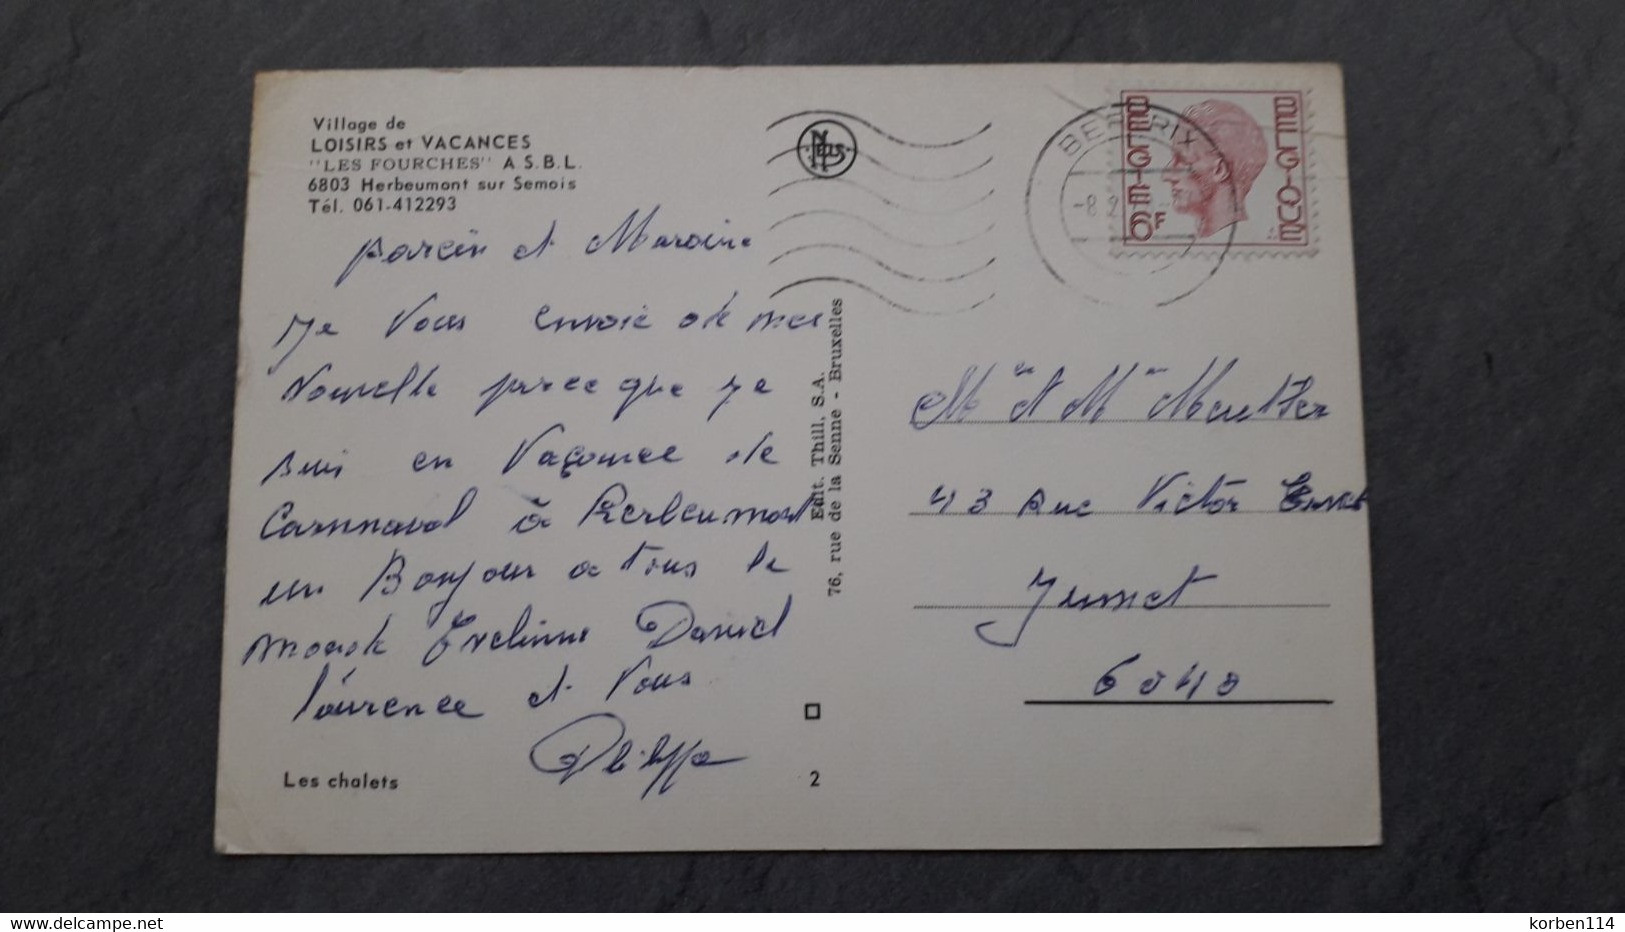 Village de
LOISIRS et VACANCES
"LES FOURCHES" A.S.B.L.
6803 Herbeumont sur Semois
Tél. 061-412293
parein et Maraine
Je Vous envoie de mes
Nouvelle parce que je
suis en Vaçance de
Carnnaval à Herbeumont
un Bonjour a tous le
monde Evelinne Daniel
Laurence et Vous
Philippe
Les chalets
2
Edit. Thill, S.A.
76, rue de la Senne - Bruxelles
Nels
BERTRIX
-8 2
BELGIE 6F
BELGIQUE
43 Rue Victor Ernest
Jumet
6040
delcampe.net
korben114